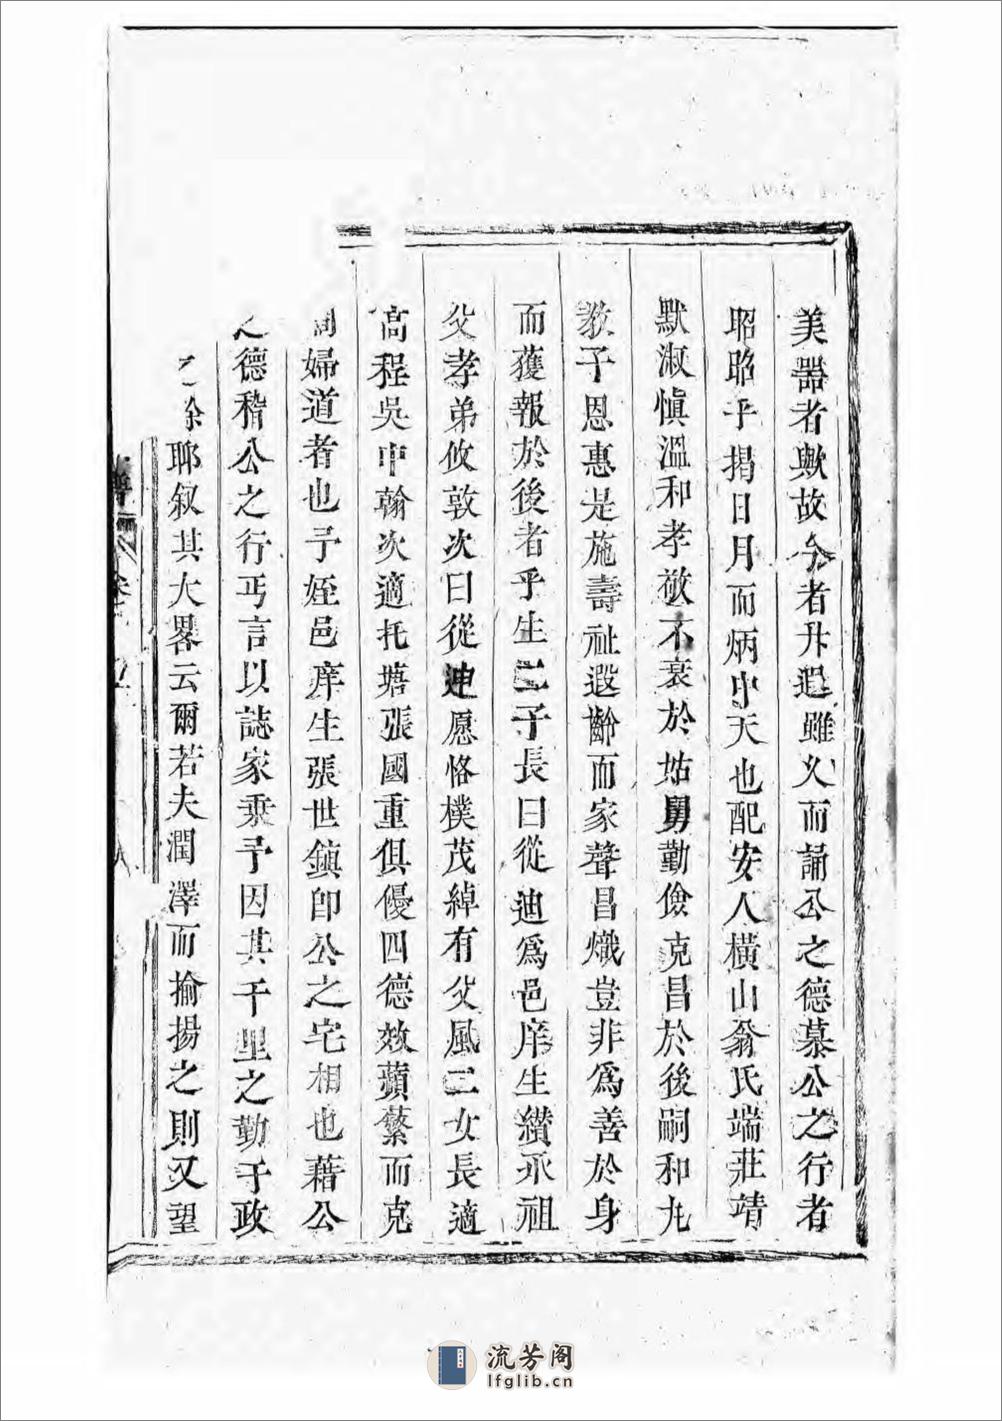 美器者歟故今者升遐雖久而誦公之德慕公之行者
昭昭乎揭日月而炳中天也配安人橫山翁氏端莊靖
默淑愼溫和孝敬不衰於姑舅勤儉克昌於後嗣和丸
教子恩惠是施壽祉遐齡而家聲昌熾豈非爲善於身
而獲報於後者乎生二子長曰從迪爲邑庠生纘承祖
父孝弟攸敦次曰從迚愿恪樸茂綽有父風二女長適
高程吳中翰次適托塘張國重俱優四德效蘋蘩而克
閑婦道者也予姪邑庠生張世鎮卽公之宅相也藉公
之德稽公之行丐言以誌家乘予因其千里之勤于政
之餘聊叙其大畧云爾若夫潤澤而揄揚之則又望
譜
卷
流芳阁
lfglib.cn